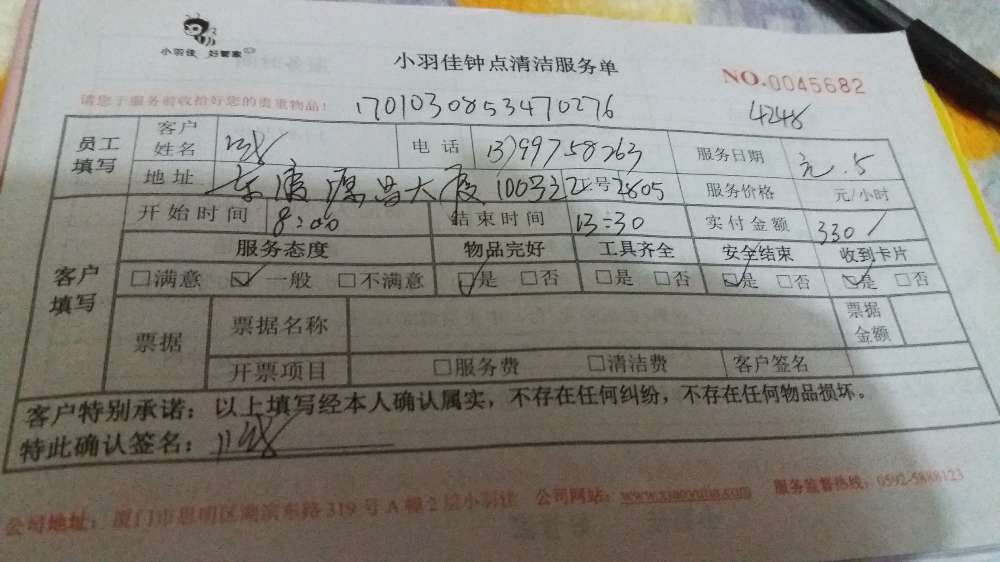 小羽佳 好管家
小羽佳钟点清洁服务单
NO.0045682
请您于服务前收拾好您的贵重物品！
1701030853470276
4248
员工填写 客户姓名 电话 13799758263 服务日期 元.5
地址 大厦 100号 2805 服务价格 元/小时
开始时间 8:00 结束时间 13:30 实付金额 330
客户填写 服务态度 物品完好 工具齐全 安全结束 收到卡片
□满意 ☑一般 □不满意 ☑是 □否 □是 □否 ☑是 □否 ☑是 □否
票据 票据名称 票据金额
开票项目 □服务费 □清洁费 客户签名
客户特别承诺：以上填写经本人确认属实，不存在任何纠纷，不存在任何物品损坏。
特此确认签名：
公司地址：厦门市思明区湖滨东路319号A幢2层小羽佳 公司网站：www.xiaoyujia.com 服务监督热线：0592-5888123